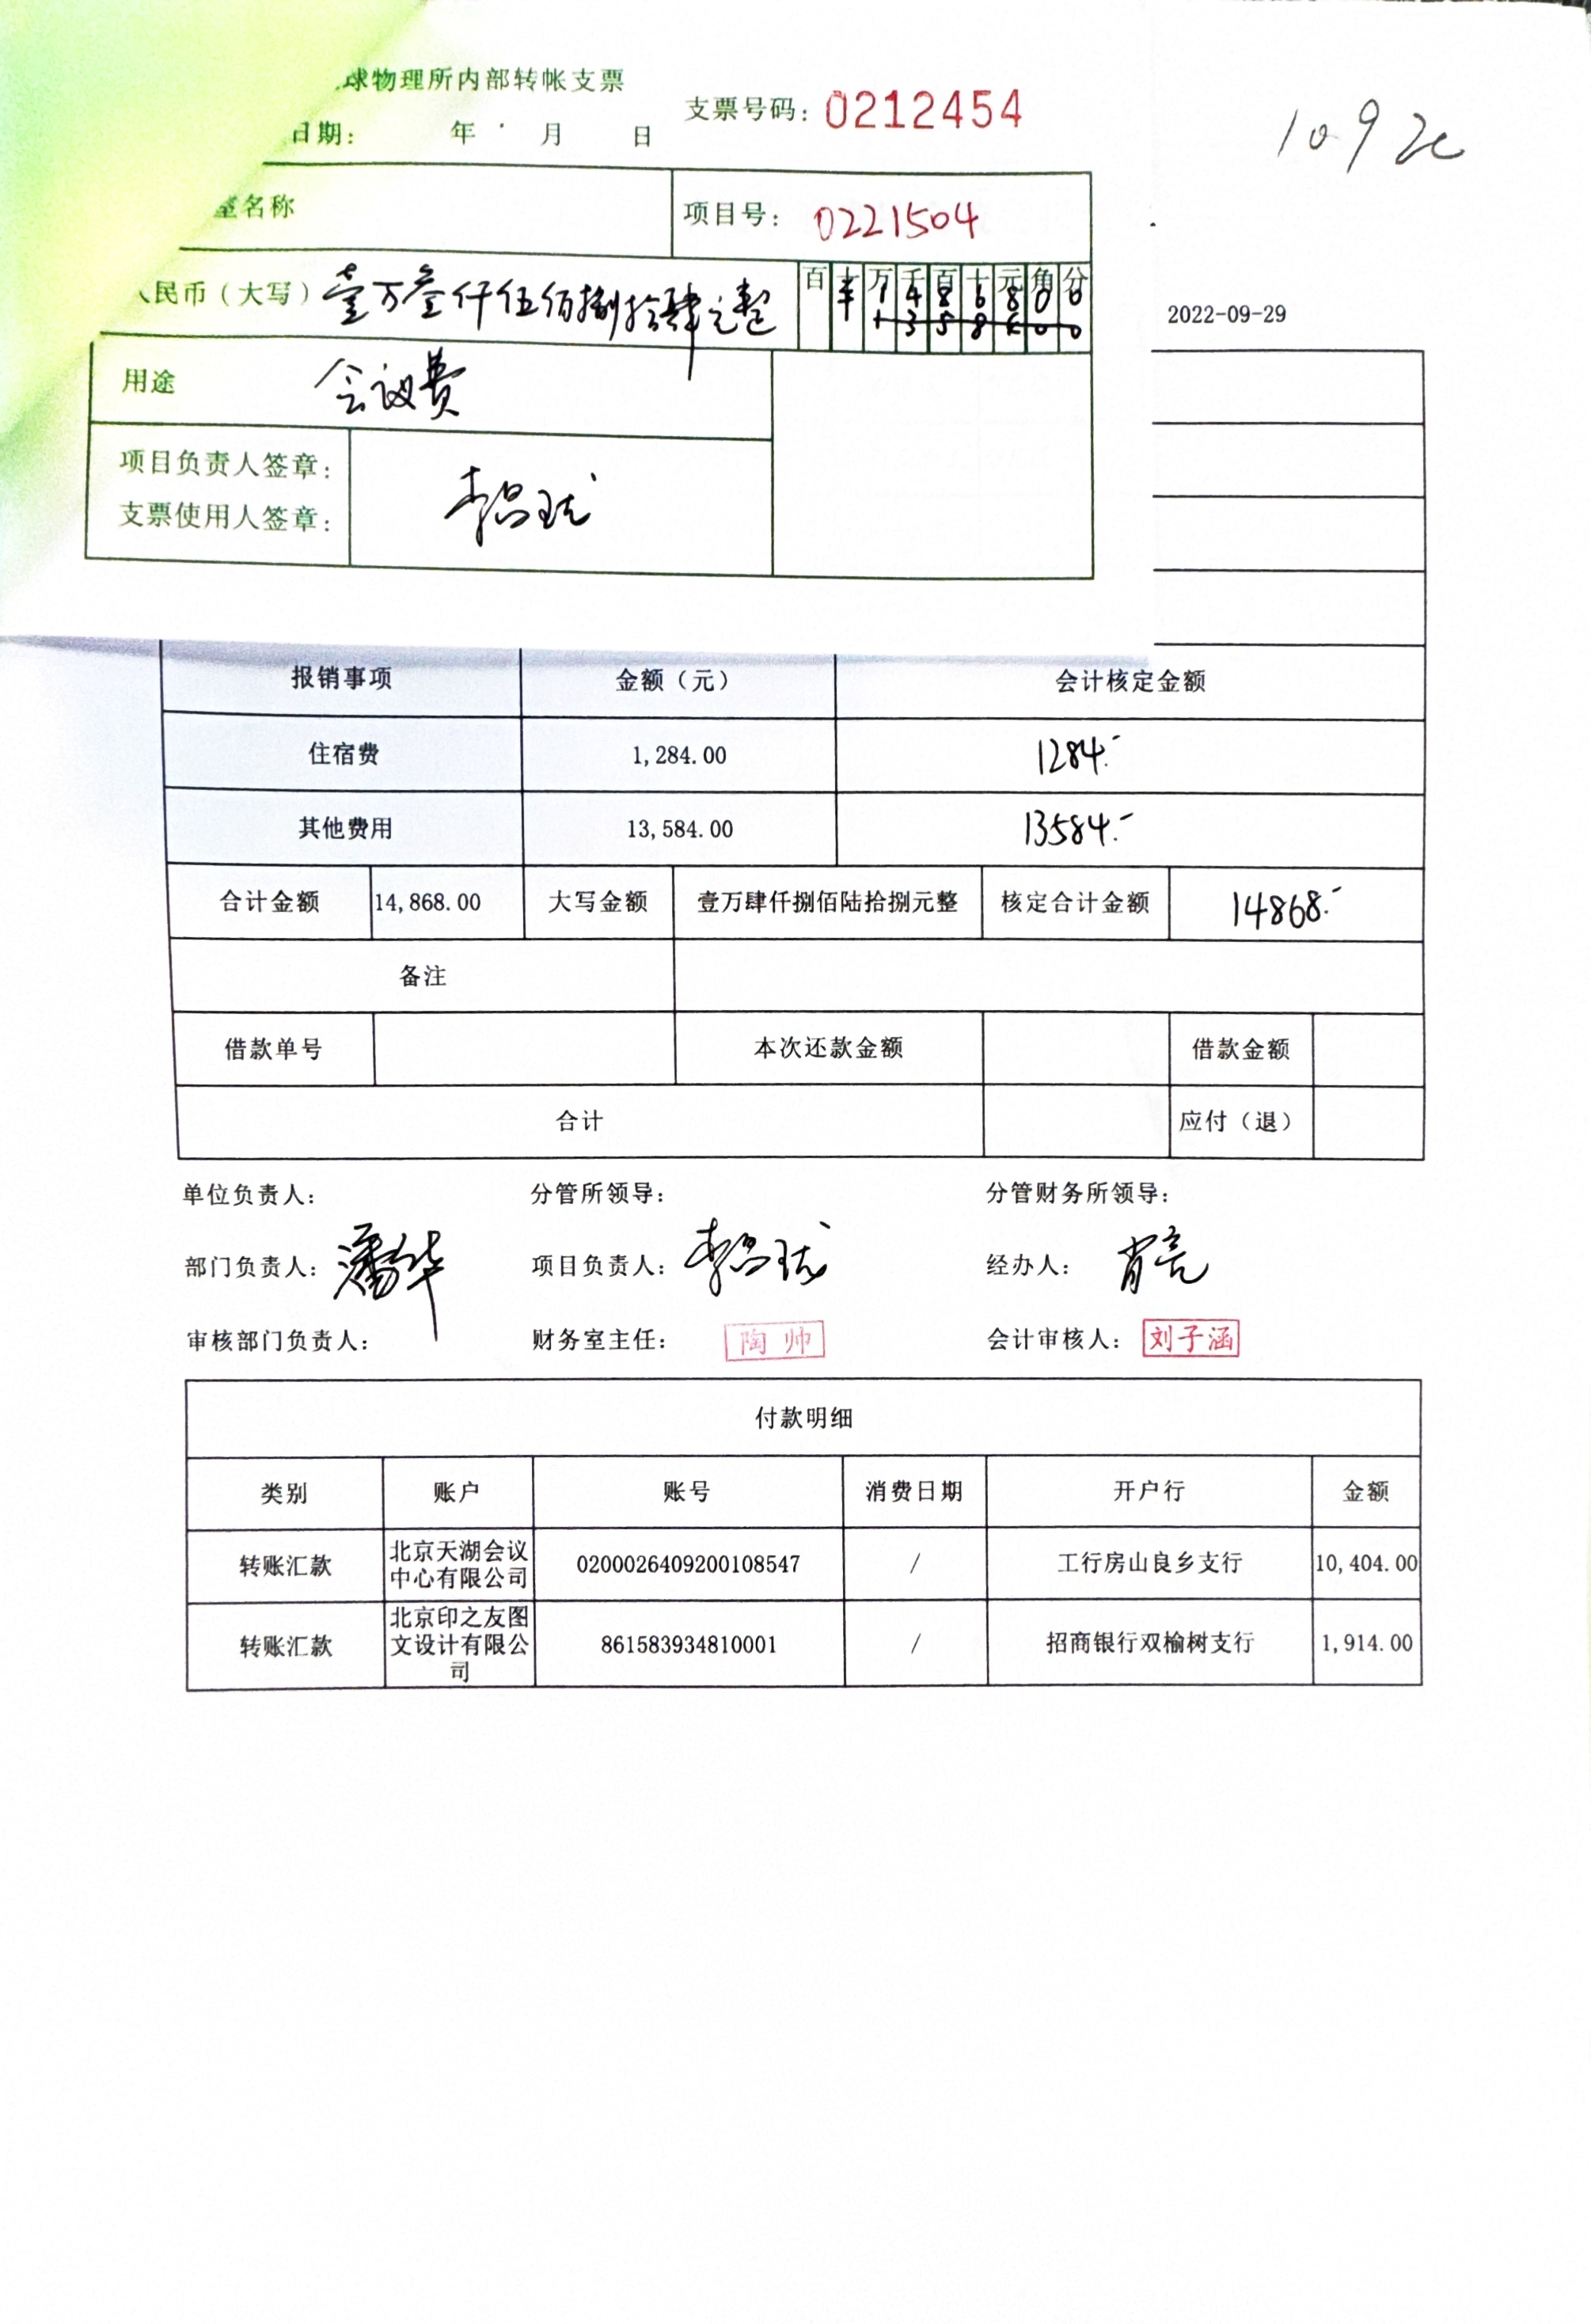 球物理所内部转帐支票
支票号码: 0212454
日期: 年 月 日
1092
室名称 项目号: 0221504
人民币(大写) 壹万叁仟伍佰捌拾肆元整 百 十 万 千 百 十 元 角 分
¥ 1 4 8 6 8 0 0
1 3 5 8 4 0 0
2022-09-29
用途 会议费
项目负责人签章:
支票使用人签章:
报销事项 金额(元) 会计核定金额
住宿费 1,284.00 1284.-
其他费用 13,584.00 13584.-
合计金额 14,868.00 大写金额 壹万肆仟捌佰陆拾捌元整 核定合计金额 14868.-
备注
借款单号 本次还款金额 借款金额
合计 应付(退)
单位负责人: 分管所领导: 分管财务所领导:
部门负责人: 潘华 项目负责人: 经办人: 肖亮
审核部门负责人: 财务室主任: 陶帅 会计审核人: 刘子涵
付款明细
类别 账户 账号 消费日期 开户行 金额
转账汇款 北京天湖会议中心有限公司 0200026409200108547 / 工行房山良乡支行 10,404.00
转账汇款 北京印之友图文设计有限公司 861583934810001 / 招商银行双榆树支行 1,914.00